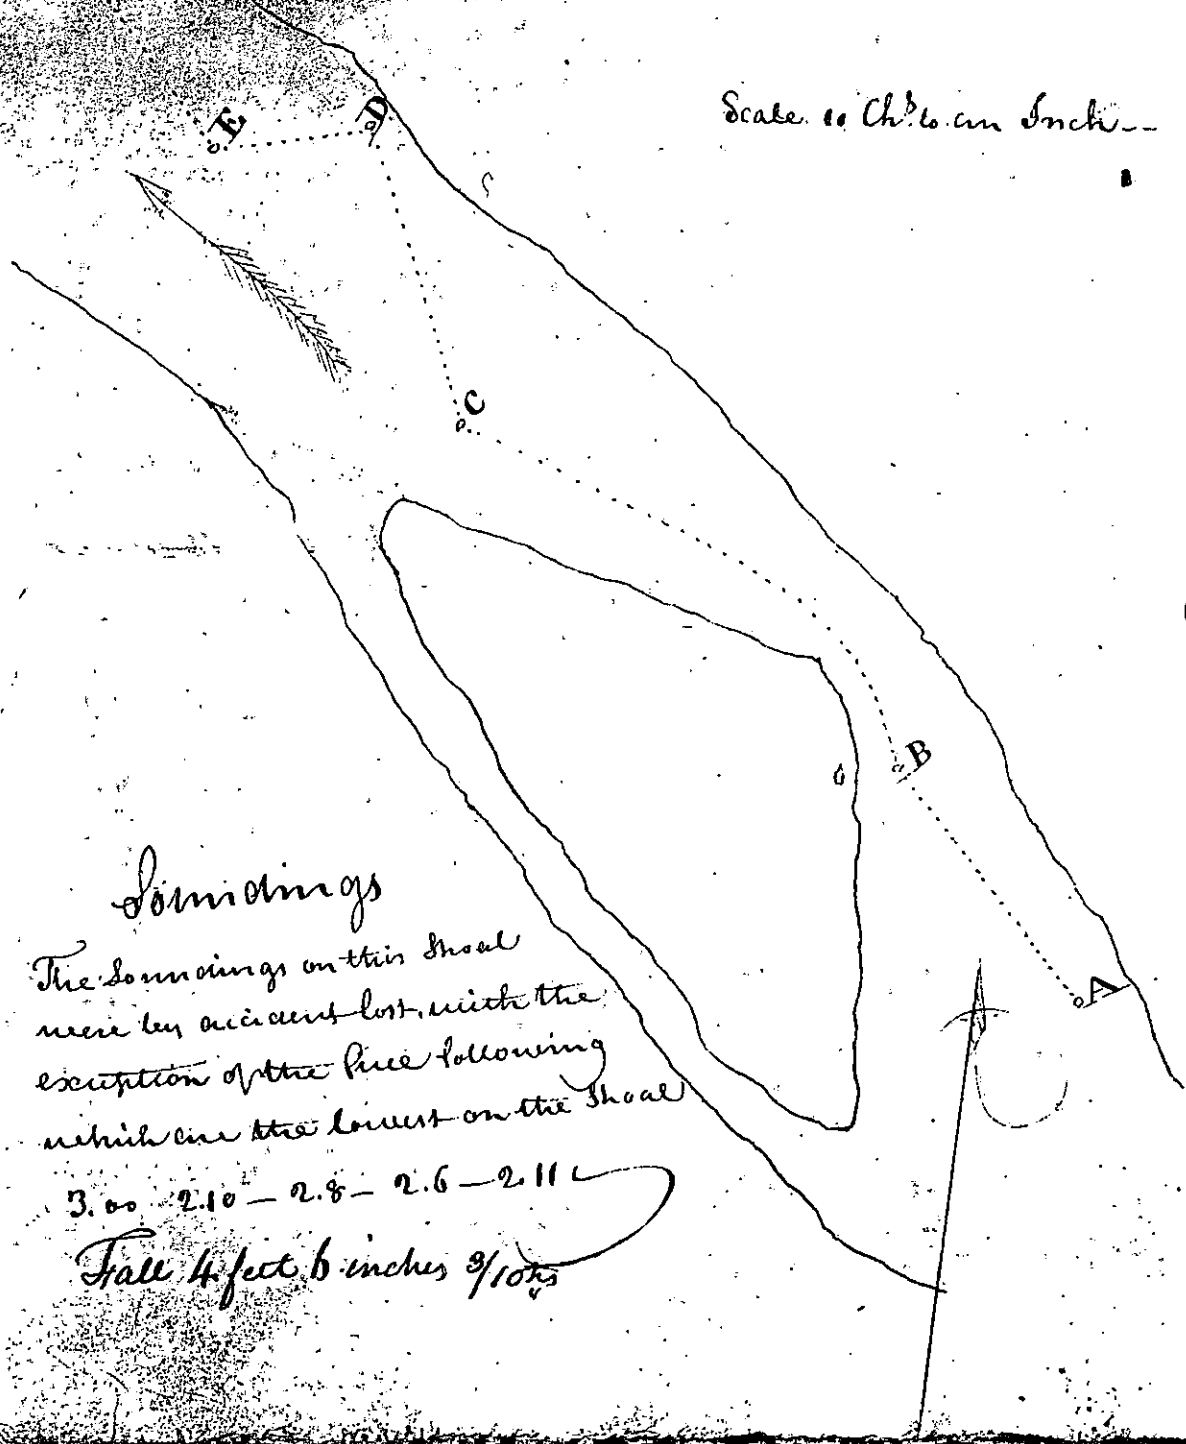 Scale 10 Chs to an Inch--
E
D
C
B
A
Soundings
The Soundings on this Shoal
were by accident lost, with the
exception of the five following
which are the lowest on the Shoal
3.00 2.10 — 2.8 — 2.6 — 2.11
Fall 4 feet 6 inches 3/10ths